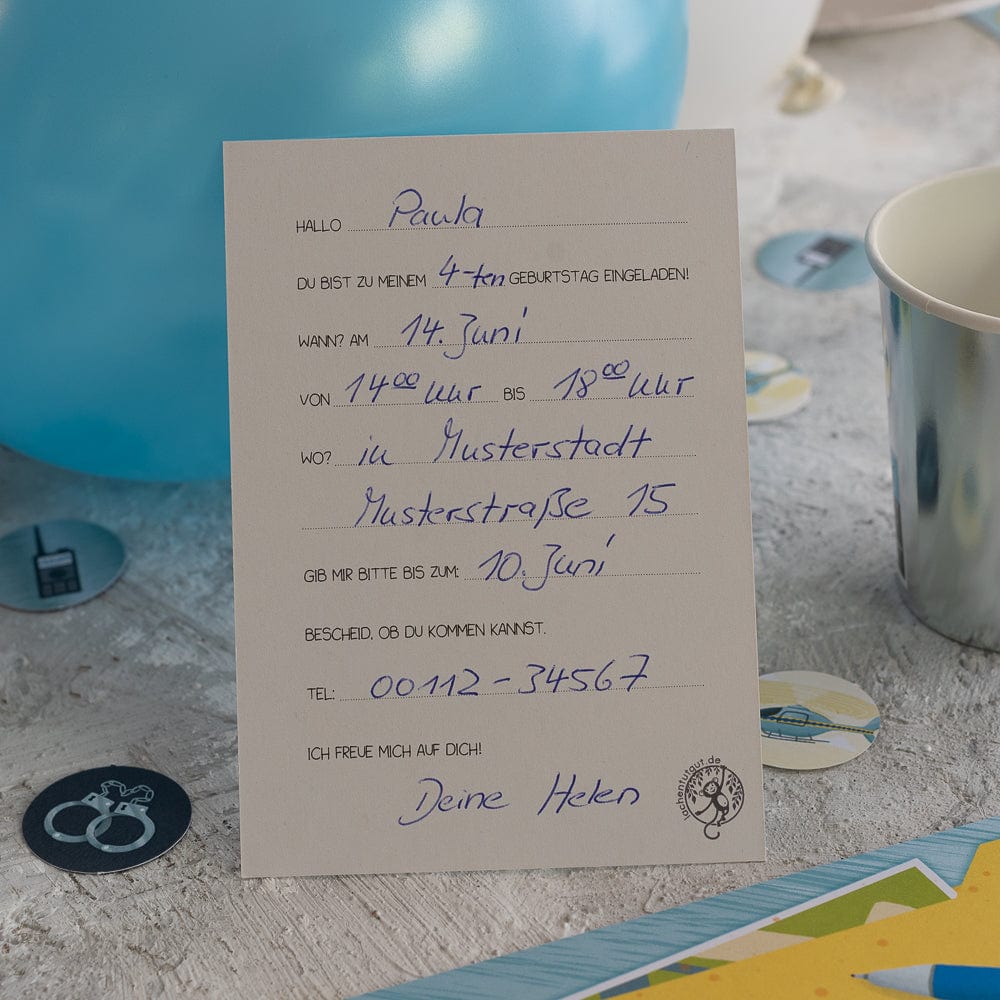 HALLO Paula
DU BIST ZU MEINEM 4-ten GEBURTSTAG EINGELADEN!
WANN? AM 14. Juni
VON 14ºº Uhr BIS 18ºº Uhr
WO? in Musterstadt
Musterstraße 15
GIB MIR BITTE BIS ZUM: 10. Juni
BESCHEID, OB DU KOMMEN KANNST.
TEL: 00112-34567
ICH FREUE MICH AUF DICH!
Deine Helen
lachentutgut.de